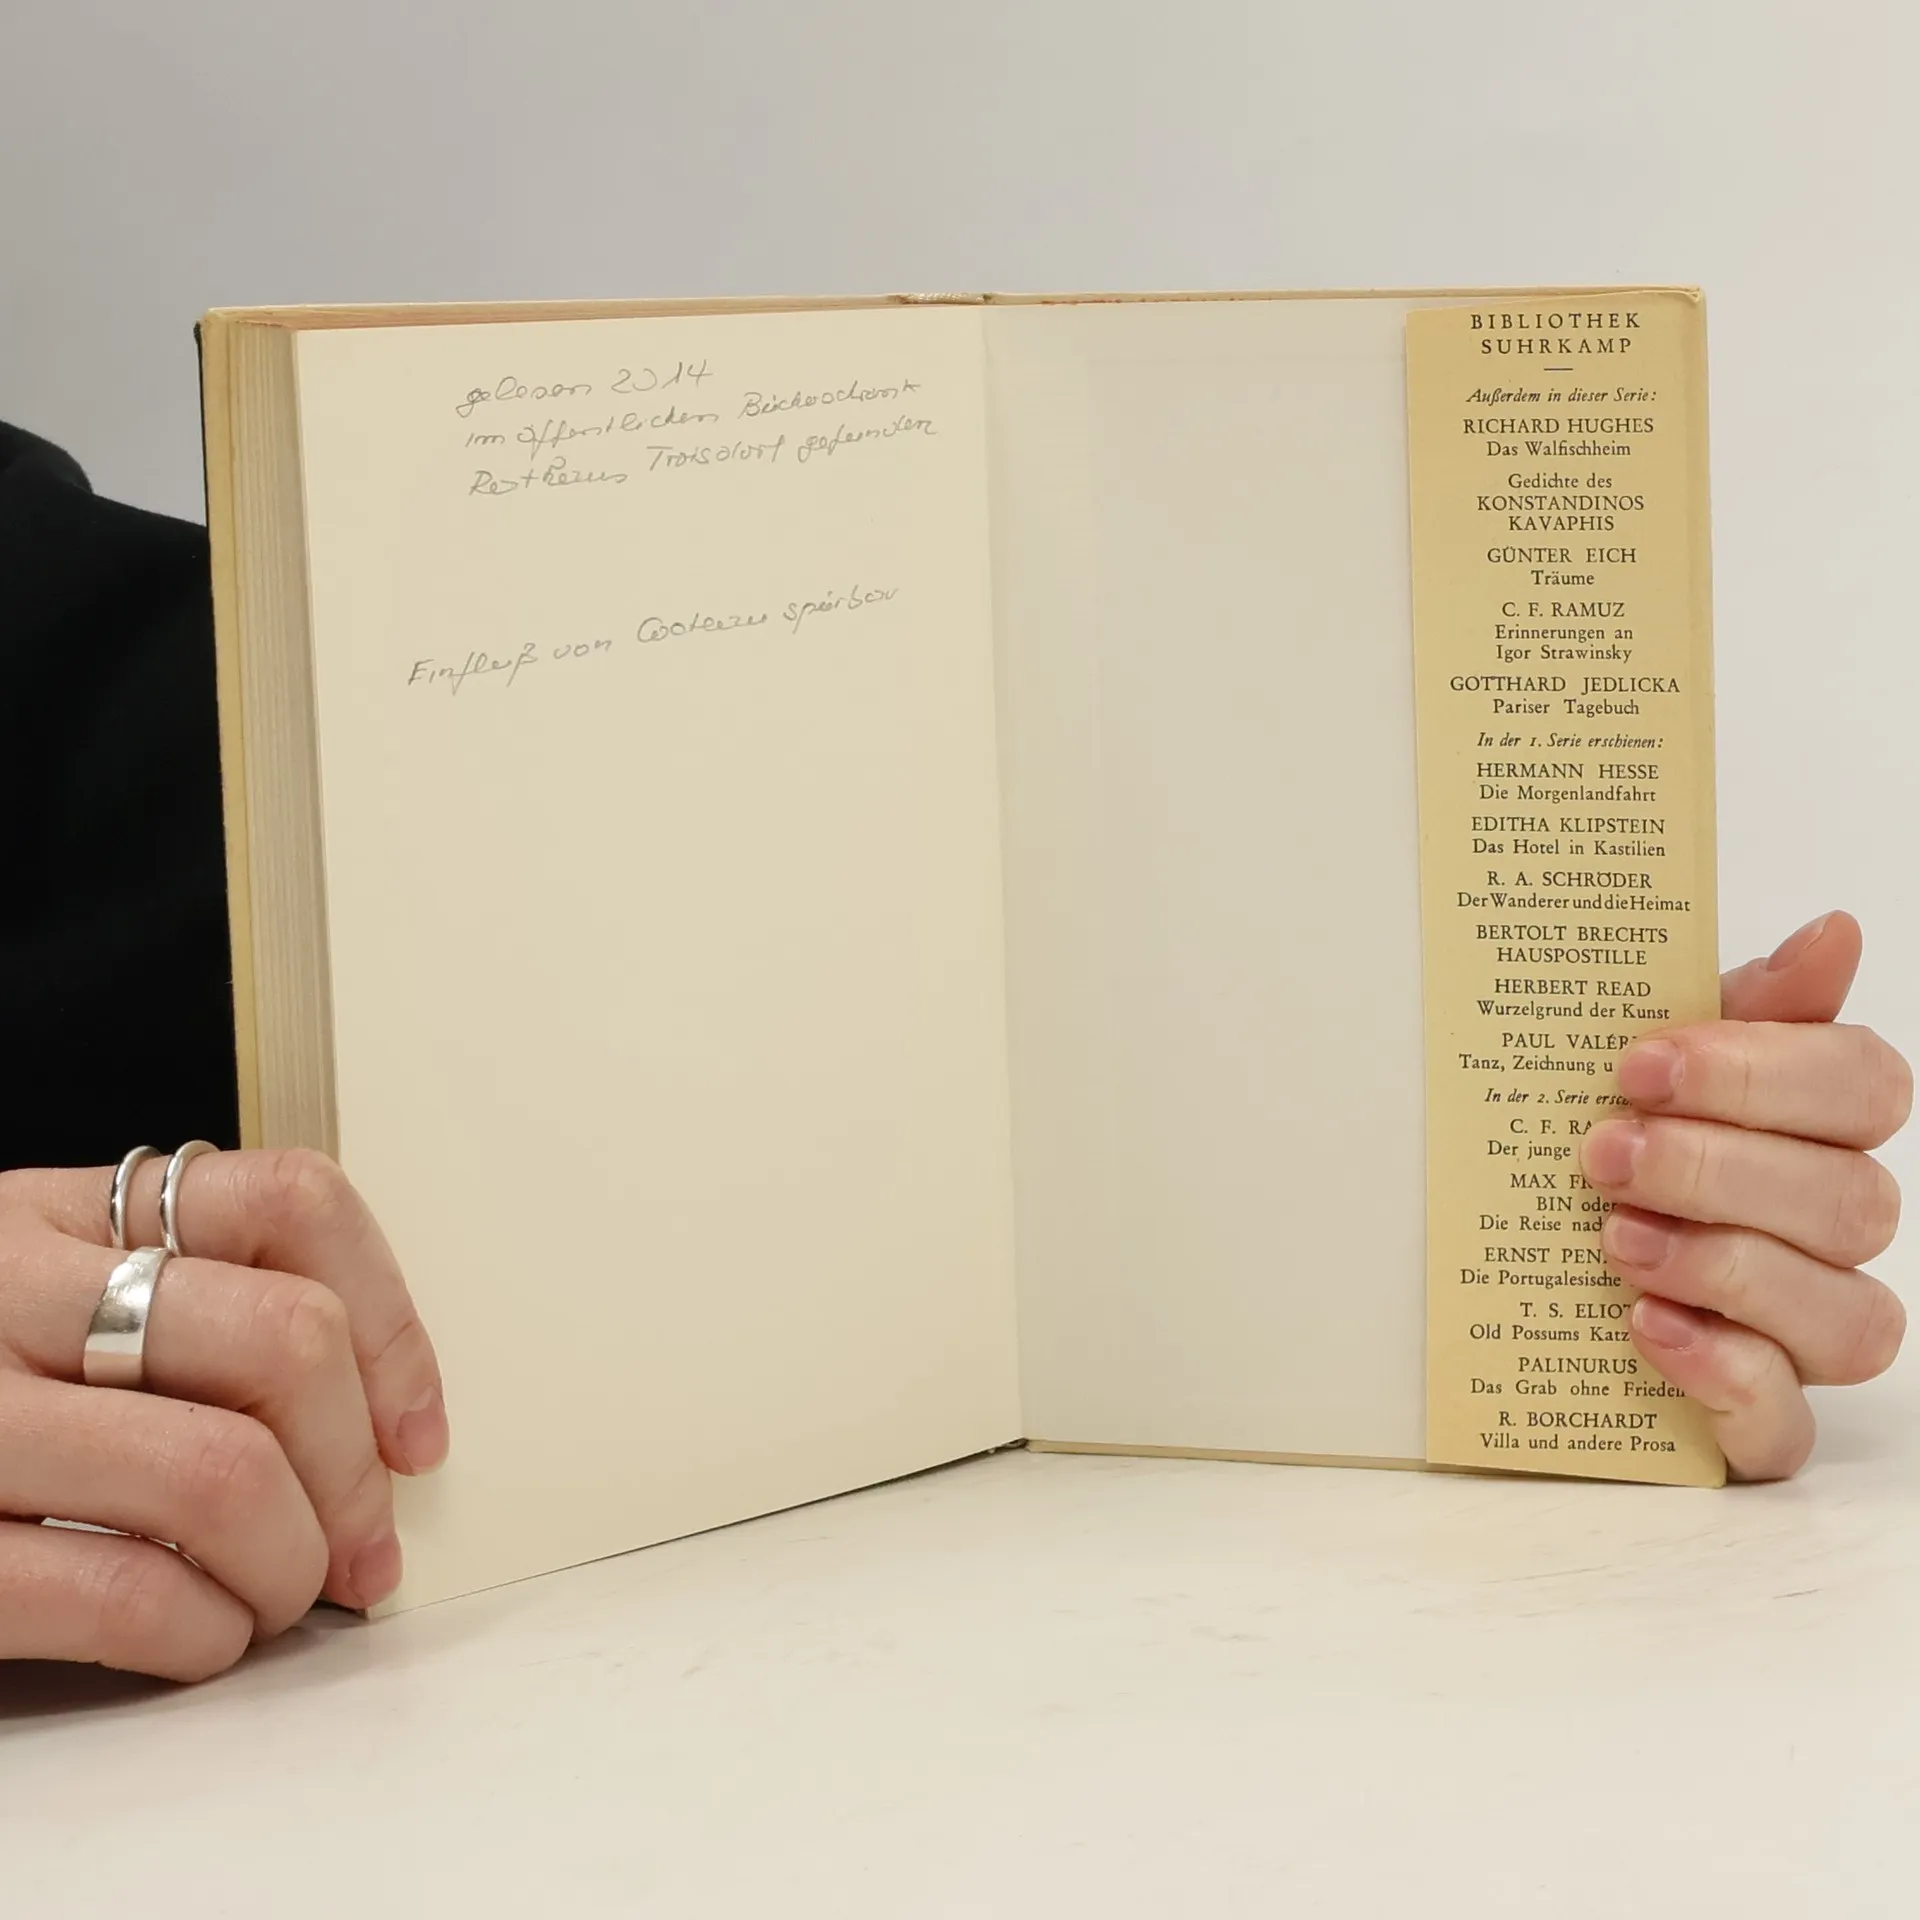 gelesen 2014
im öffentlichen Bücherschrank
Rathaus Troisdorf gefunden
Einfluß von spürbar
BIBLIOTHEK
SUHRKAMP
Außerdem in dieser Serie:
RICHARD HUGHES
Das Walfischheim
Gedichte des
KONSTANDINOS
KAVAPHIS
GÜNTER EICH
Träume
C. F. RAMUZ
Erinnerungen an
Igor Strawinsky
GOTTHARD JEDLICKA
Pariser Tagebuch
In der 1. Serie erschienen:
HERMANN HESSE
Die Morgenlandfahrt
EDITHA KLIPSTEIN
Das Hotel in Kastilien
R. A. SCHRÖDER
Der Wanderer und die Heimat
BERTOLT BRECHTS
HAUSPOSTILLE
HERBERT READ
Wurzelgrund der Kunst
PAUL VALÉR
Tanz, Zeichnung u
In der 2. Serie ersc
C. F. RA
Der junge
MAX FR
BIN oder
Die Reise nac
ERNST PEN
Die Portugalesische
T. S. ELIOT
Old Possums Katz
PALINURUS
Das Grab ohne Frieden
R. BORCHARDT
Villa und andere Prosa